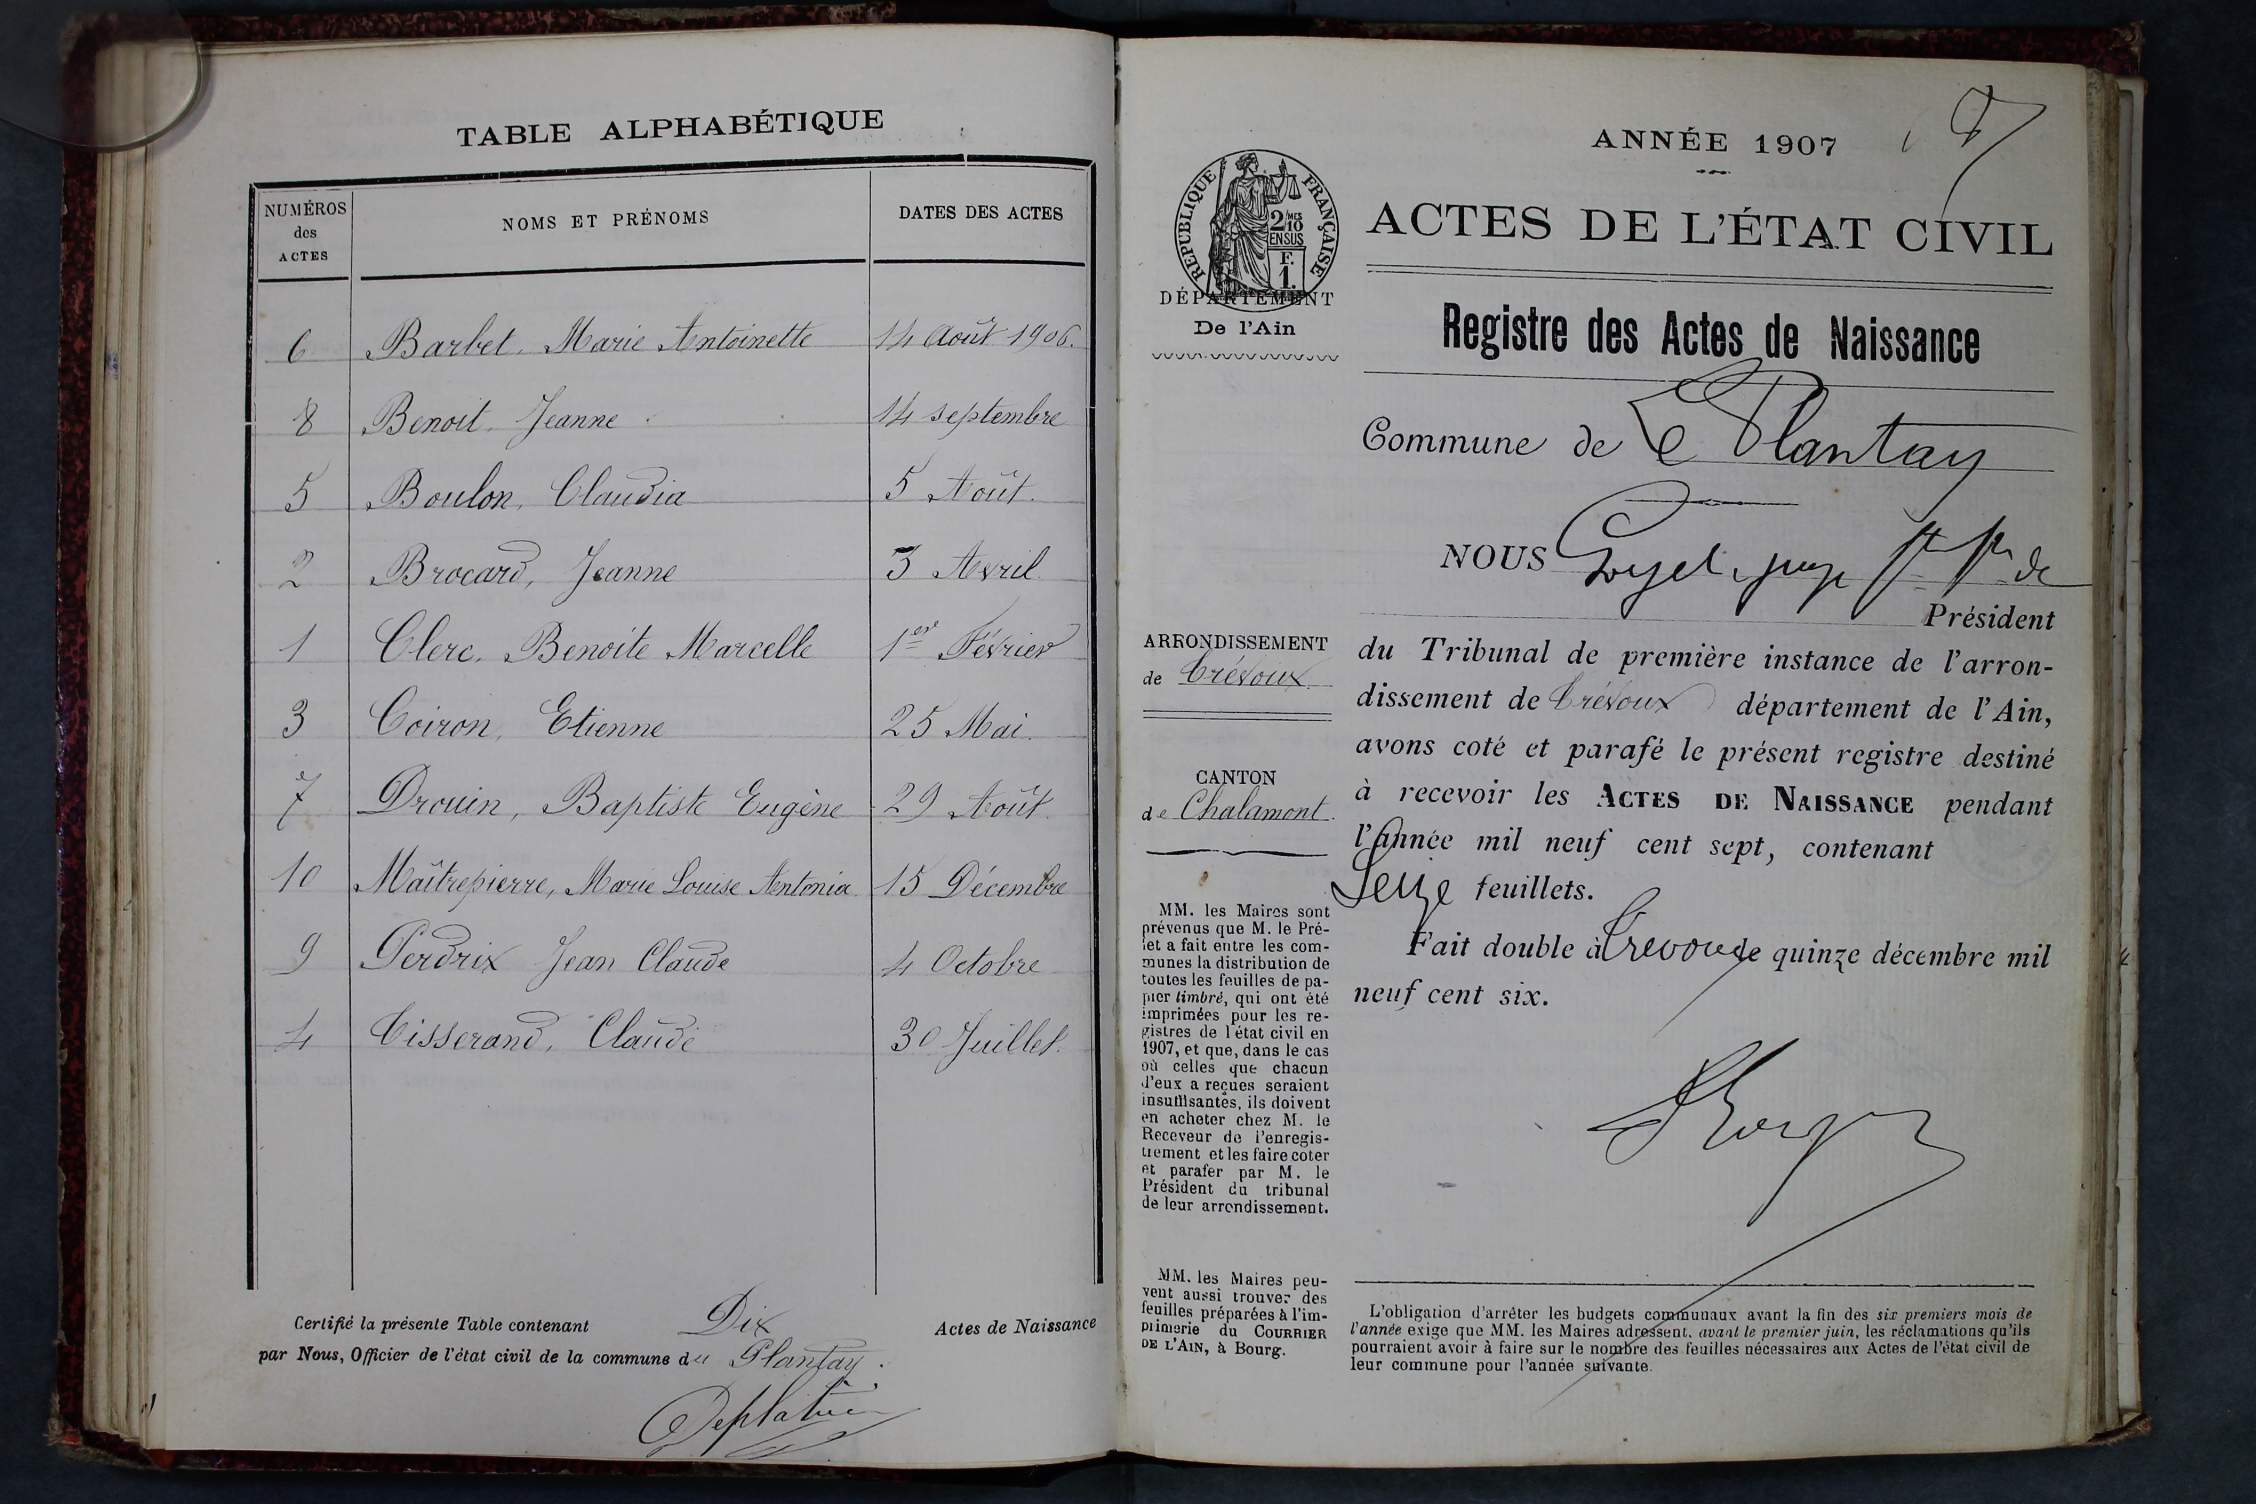 TABLE ALPHABÉTIQUE
NUMÉROS des ACTES
NOMS ET PRÉNOMS
DATES DES ACTES
6 Barbet, Marie Antoinette 14 Août 1906.
8 Benoit, Jeanne 14 septembre
5 Boulon, Claudia 5 Août.
2 Brocard, Jeanne 3 Avril
1 Clerc, Benoite Marcelle 1er Février
3 Coiron, Etienne 25 Mai.
7 Drouin, Baptiste Eugène 29 Août.
10 Maîtrepierre, Marie Louise Antonia 15 Décembre
9 Perdrix Jean Claude 4 Octobre
4 Tisserand, Claude 30 Juillet.
Certifié la présente Table contenant Dix Actes de Naissance
par Nous, Officier de l'état civil de la commune du Plantay.
ANNÉE 1907
ACTES DE L'ÉTAT CIVIL
RÉPUBLIQUE FRANÇAISE
2/10 MES
EN SUS
F.
1.
DÉPARTEMENT
De l'Ain
Registre des Actes de Naissance
Commune de Le Plantay
NOUS Goyet, juge de
Président
du Tribunal de première instance de l'arron-
dissement de Trévoux département de l'Ain,
avons coté et parafé le présent registre destiné
à recevoir les ACTES DE NAISSANCE pendant
l'Année mil neuf cent sept, contenant
Seize feuillets.
Fait double à Trevoux le quinze décembre mil
neuf cent six.
ARRONDISSEMENT
de Trévoux.
CANTON
de Chalamont.
MM. les Maires sont
prévenus que M. le Pré-
fet a fait entre les com-
munes la distribution de
toutes les feuilles de pa-
pier timbré, qui ont été
imprimées pour les re-
gistres de l'état civil en
1907, et que, dans le cas
où celles que chacun
d'eux a reçues seraient
insuffisantes, ils doivent
en acheter chez M. le
Receveur de l'enregis-
trement et les faire coter
et parafer par M. le
Président du tribunal
de leur arrondissement.
MM. les Maires peu-
vent aussi trouver des
feuilles préparées à l'im-
primerie du COURRIER
DE L'AIN, à Bourg.
L'obligation d'arrêter les budgets communaux avant la fin des six premiers mois de
l'année exige que MM. les Maires adressent, avant le premier juin, les réclamations qu'ils
pourraient avoir à faire sur le nombre des feuilles nécessaires aux Actes de l'état civil de
leur commune pour l'année suivante.